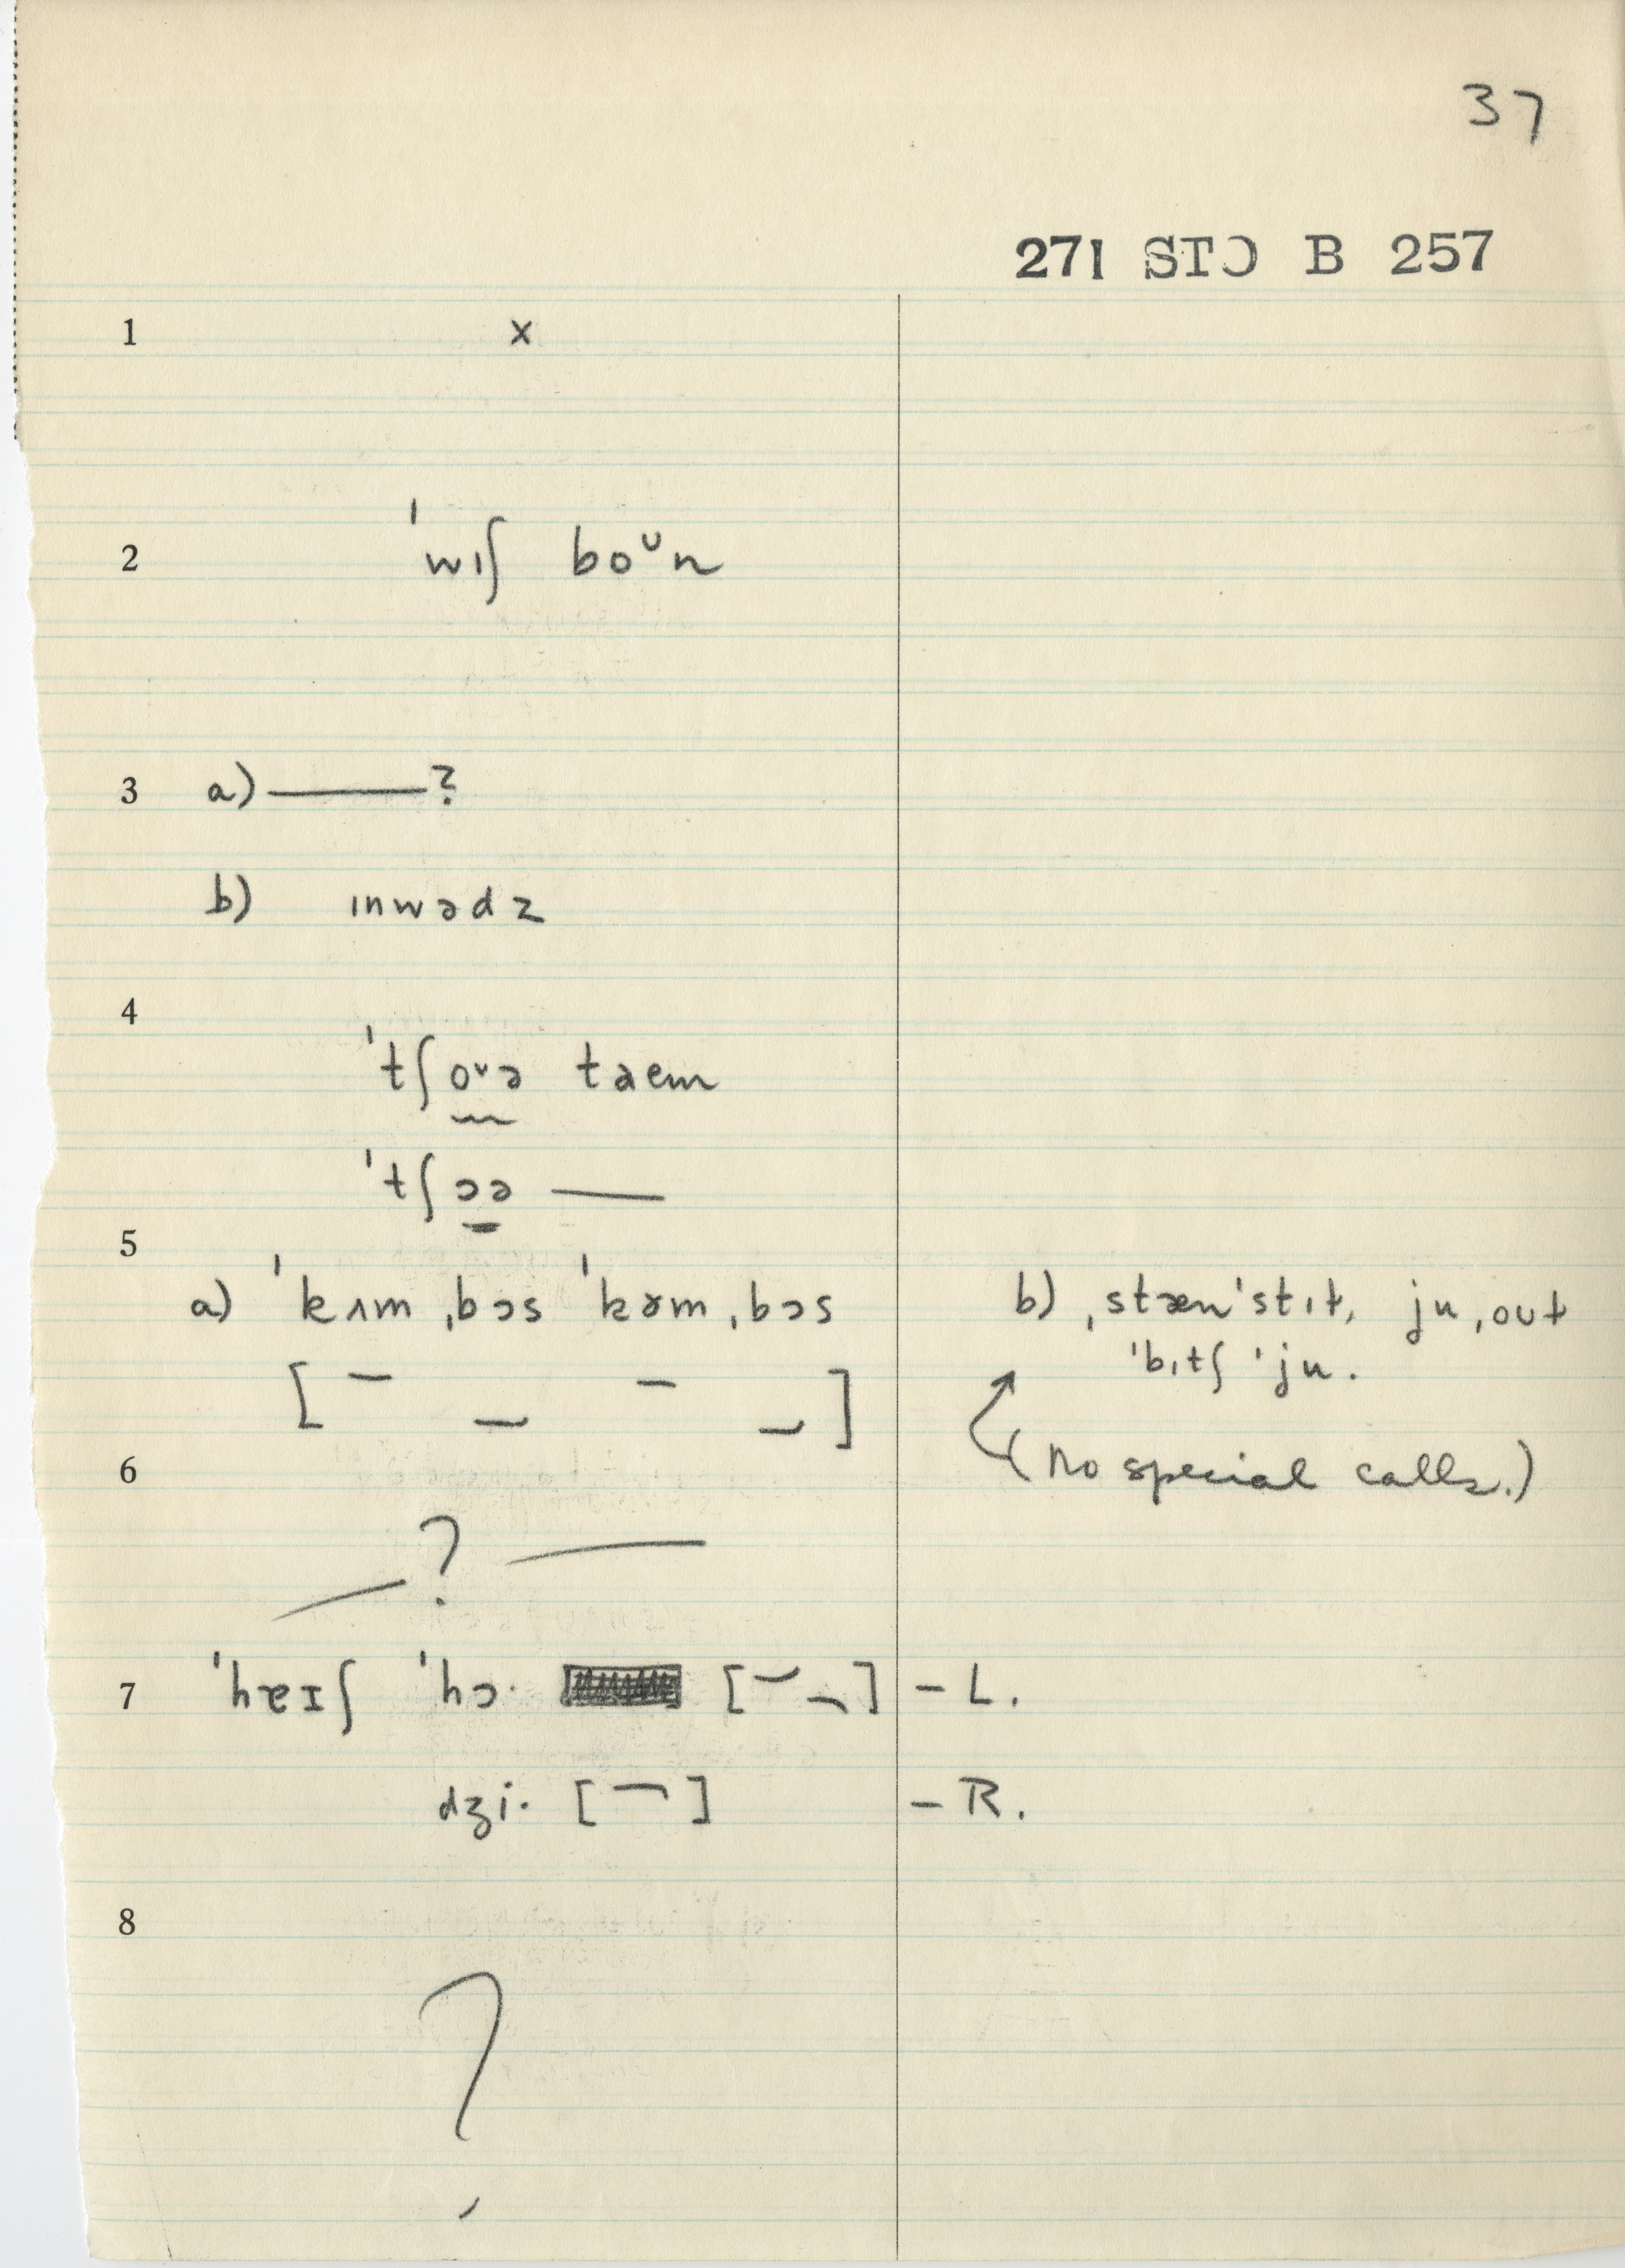 37
271 STƆ B 257
1 x
2 ˈwɪʃ boᶷn
3 a) ———?
b) ɪnwədz
4
ˈtʃoᶷə taem
ˈtʃɔə ——
5
a) ˈkʌm ˌbɔs ˈkəm ˌbɔs
[ – _ – _ ]
b) ˌstænˈstɪt, ju ˌout
ˈbɪtʃ ˈju.
(no special calls.)
6
— ? —
7 ˈhɐɪʃ ˈhɔ· [ ] – L.
dʒi· [ ] – R.
8
?